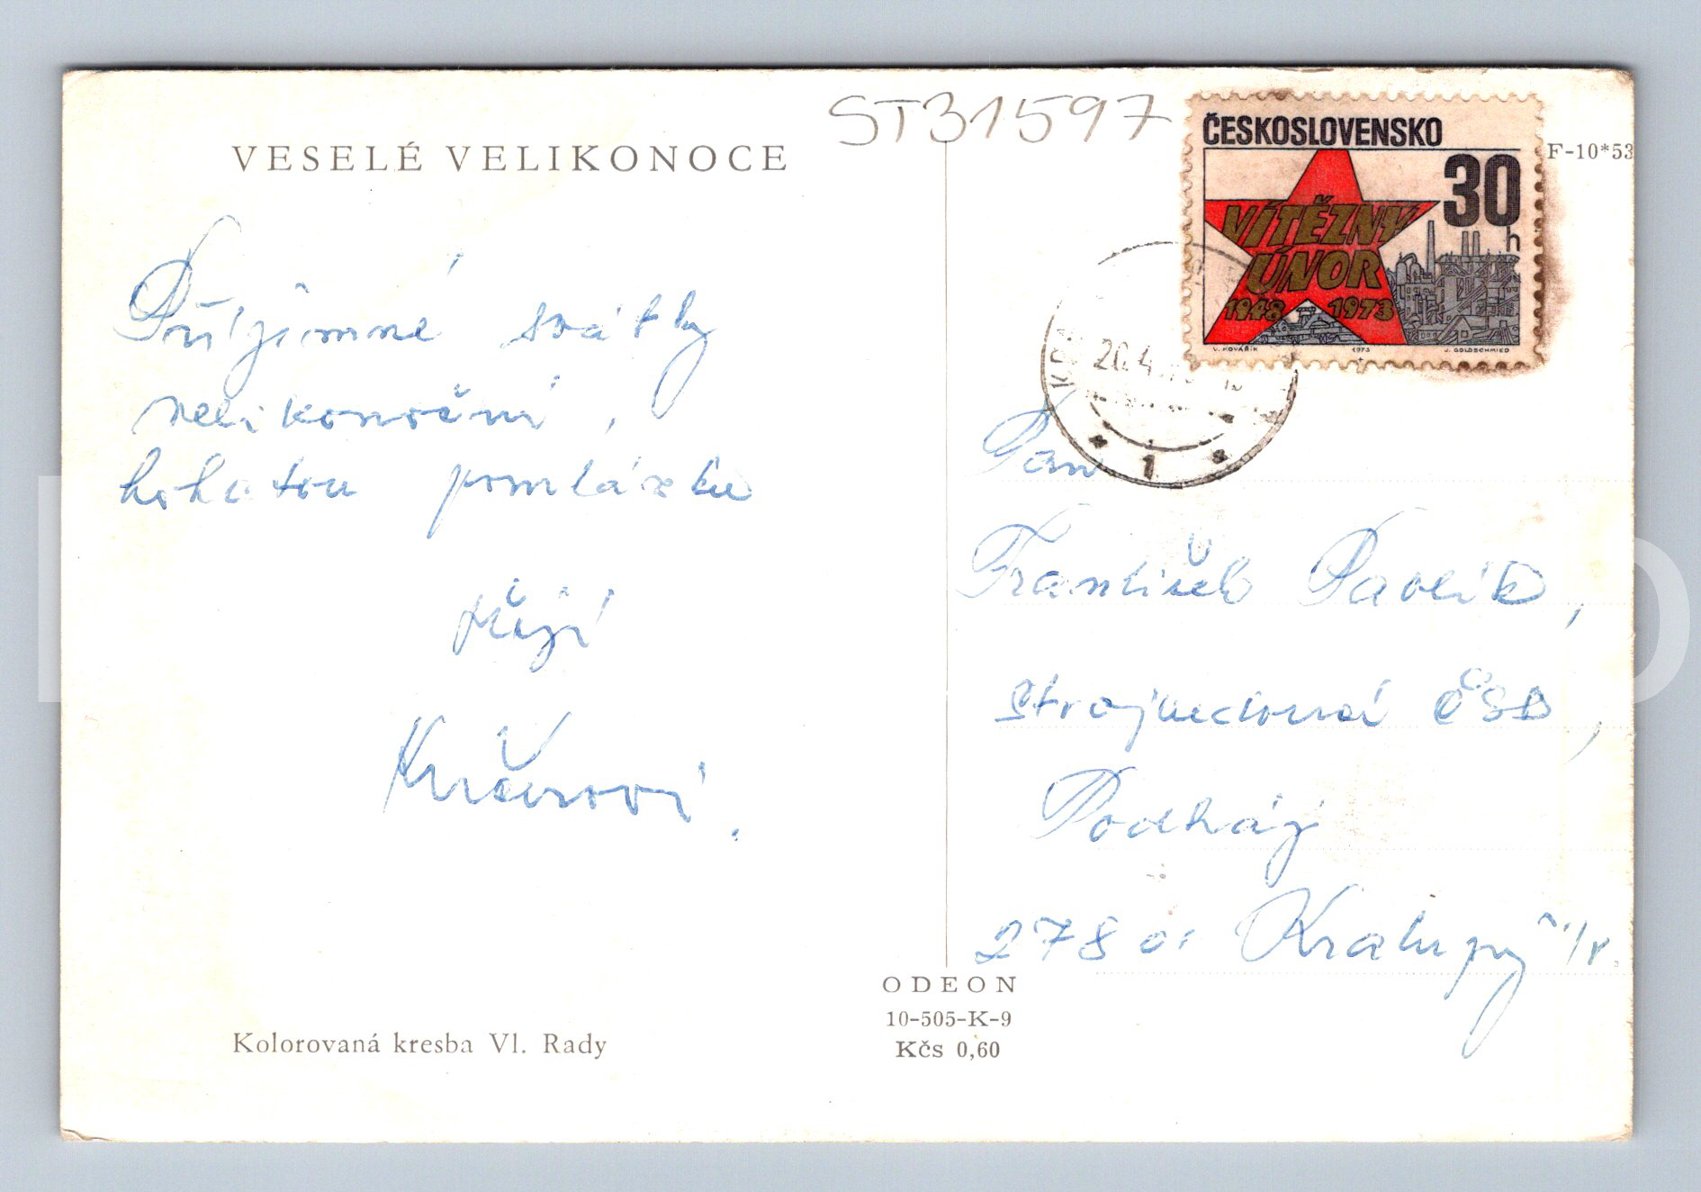 ST31597
VESELÉ VELIKONOCE
Příjemné svátky
velikonoční,
bohatou pomlázku
přejí
ČESKOSLOVENSKO
30
h
VÍTĚZNÝ
ÚNOR
1948 1973
V. KOVÁŘÍK 1973 J. GOLDSCHMIED
F-10*53
20.4.
1
Pan
František Pavlík,
strojvedoucí ČSD,
Podháj
278 01 Kralupy n/V.
ODEON
10-505-K-9
Kčs 0,60
Kolorovaná kresba Vl. Rady